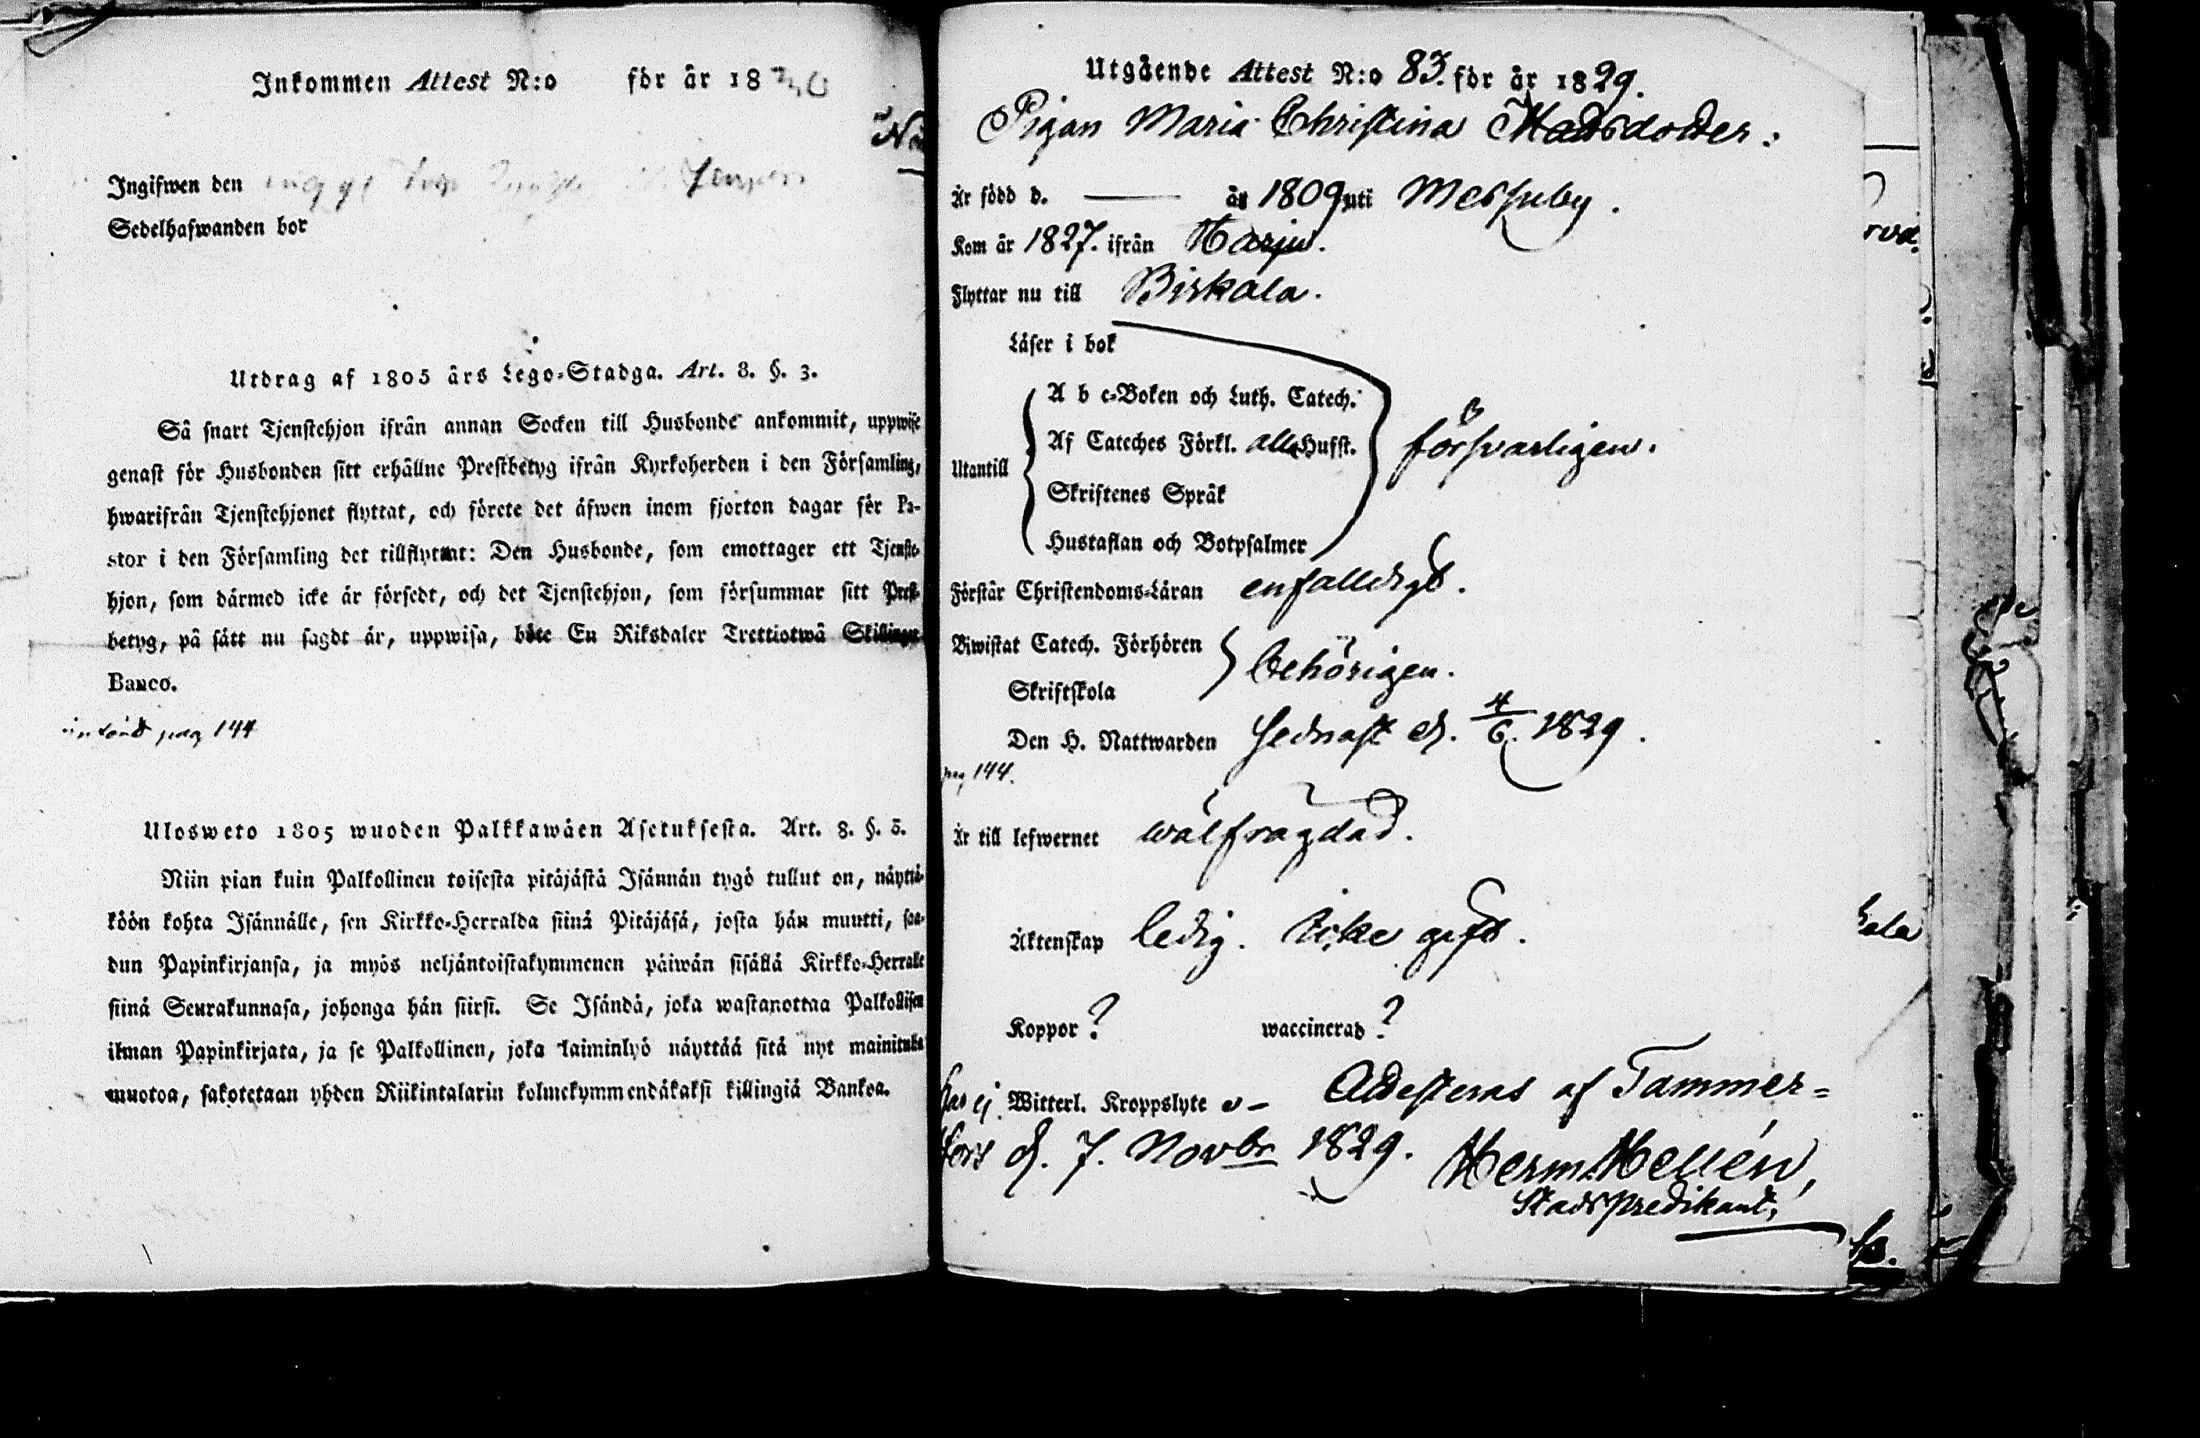 Inkommen Attest N:o för år 18
Ingifwen den
Sedelhafwanden bor
Utdrag af 1805 års Lego-Stadga. Art. 8. §. 3.
Så snart Tjenstehjon ifrån annan Socken till Husbonde ankommit, uppwise
genast för Husbonden sitt erhållne Prestbetyg ifrån Kyrkoherden i den Församling,
hwarifrån Tjenstehjonet flyttat, och förete det äfwen inom fjorton dagar för Pa-
stor i den Församling det tillflyttat: Den Husbonde, som emottager ett Tjenste-
hjon, som därmed icke är försedt, och det Tjenstehjon, som försummar sitt Prest-
betyg, på sätt nu sagdt är, uppwisa, böte En Riksdaler Trettiotwå Skillingar
Banco.
pag 144
Ulosweto 1805 wuoden Palkkawäen Asetuksesta. Art. 8. §. 3.
Niin pian kuin Palkollinen toisesta pitäjästä Isännän tygö tullut on, näyttä-
köön kohta Isännälle, sen Kirkko-Herralda siinä Pitäjäsä, josta hän muutti, saa-
dun Papinkirjansa, ja myös neljäntoistakymmenen päiwän sisällä Kirkko-Herralle
siinä Seurakunnasa, johonga hän siirsi. Se Isändä, joka wastanottaa Palkollisen
ilman Papinkirjata, ja se Palkollinen, joka laiminlyö näyttää sitä nyt mainitulla
muotoa, sakotetaan yhden Riikintalarin kolmekymmendäkaksi killingiä Bankoa.
Utgående Attest N:o 83. för år 1829.
Pigan Maria Christina Matsdotter:
Är född d. — år 1809 uti Messuby.
Kom år 1827. ifrån Harju.
Flyttar nu till Birkala.
Läser i bok
A b c-Boken och Luth. Catech.
Af Cateches Förkl. alla Hufst. försvarligen.
Utantill
Skriftenes Språk
Hustaflan och Botpsalmer
Förstår Christendoms-Läran enfalldigt.
Biwistat Catech. Förhören
behörigen.
Skriftskola
Den H. Nattwarden sednast d. 4/6. 1829.
pag 144.
Är till lefwernet wälfrägdad.
Äktenskap ledig. icke gift.
Koppor? waccinerad?
har ej Witterl. Kroppslyte Attesteras af Tammer=
fors d. 7. Novbr 1829. Herm. Hellén,
Stads predikant,